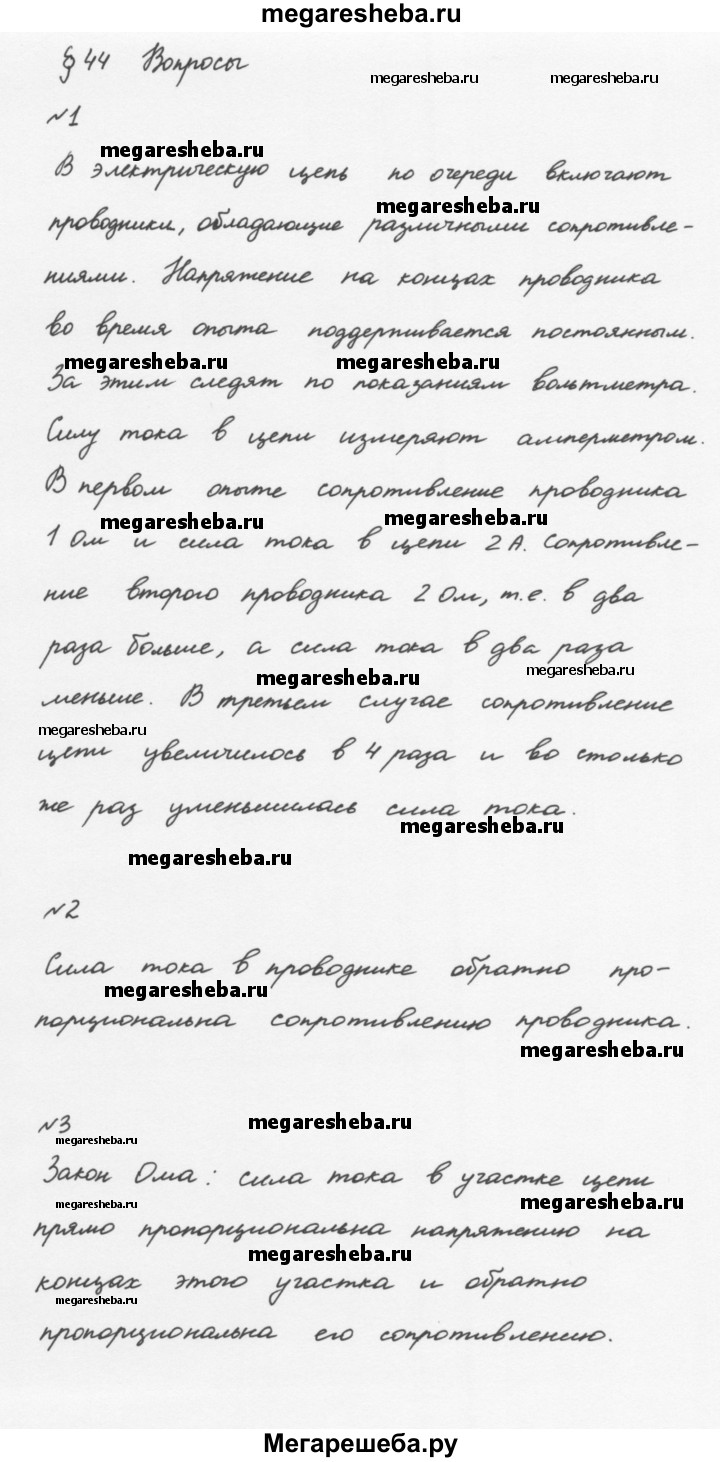 megaresheba.ru
§ 44 Вопросы
megaresheba.ru megaresheba.ru
№1
megaresheba.ru
В электрическую цепь по очереди включают
megaresheba.ru
проводники, обладающие различными сопротивле-
ниями. Напряжение на концах проводника
во время опыта поддерживается постоянным.
megaresheba.ru megaresheba.ru
За этим следят по показаниям вольтметра.
Силу тока в цепи измеряют амперметром.
В первом опыте сопротивление проводника
megaresheba.ru megaresheba.ru
1 Ом и сила тока в цепи 2 А. Сопротивле-
ние второго проводника 2 Ом, т.е. в два
раза больше, а сила тока в два раза
megaresheba.ru megaresheba.ru
меньше. В третьем случае сопротивление
megaresheba.ru
цепи увеличилось в 4 раза и во столько
же раз уменьшилась сила тока.
megaresheba.ru
megaresheba.ru
№2
Сила тока в проводнике обратно про-
megaresheba.ru
порциональна сопротивлению проводника.
megaresheba.ru
№3
megaresheba.ru
megaresheba.ru
Закон Ома: сила тока в участке цепи
megaresheba.ru megaresheba.ru
прямо пропорциональна напряжению на
megaresheba.ru
концах этого участка и обратно
megaresheba.ru
пропорциональна его сопротивлению.
Мегарешеба.ру